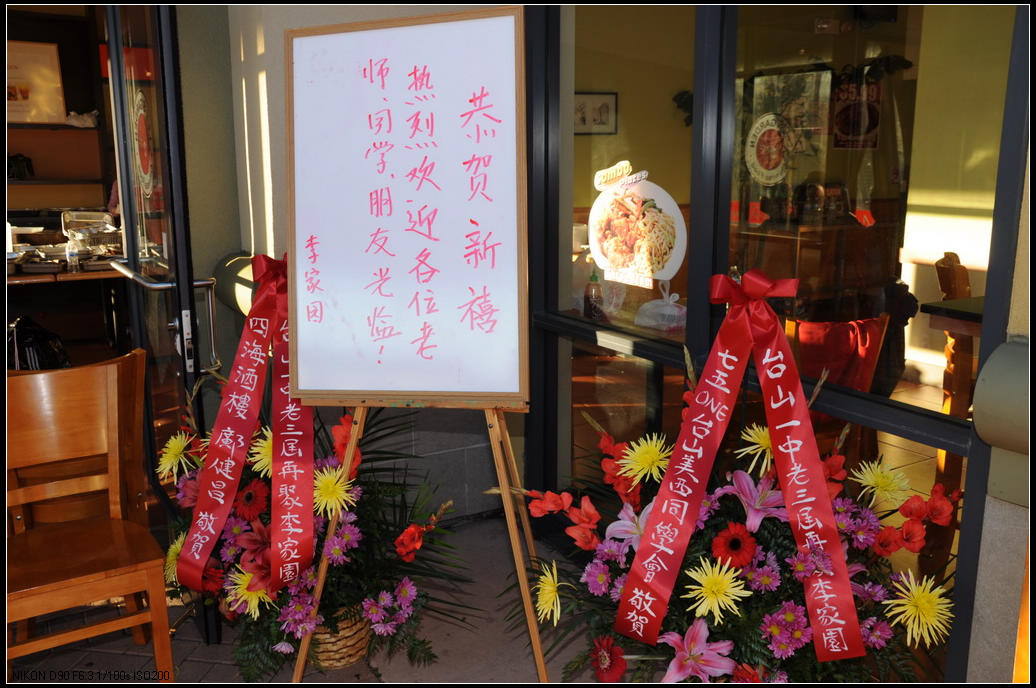 恭贺新禧
热烈欢迎各位老
师、同学、朋友光临！
李家园
台山一中老三届再聚李家園
四海酒樓 鄺健昌 敬賀
台山一中老三届再聚李家園
七五ONE台山美西同學會 敬賀
Jumbo
Plates
$5.99
NIKON D90 F6.3 1/160s ISO200